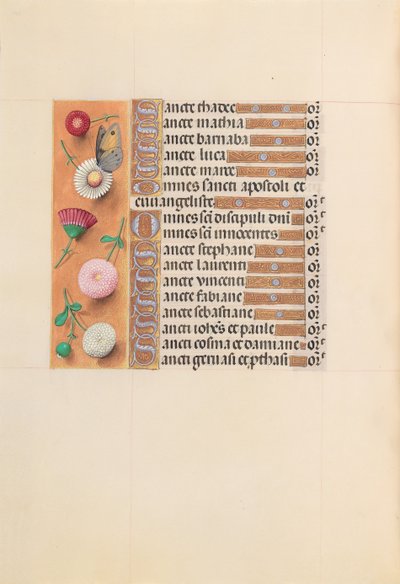 Sancte thadee or̄
Sancte mathia or̄
Sancte barnaba or̄
Sancte luca or̄
Sancte marce or̄
Omnes sancti apostoli et
euuangeliste or̄
Omnes sc̄i discipuli dn̄i or̄
Omnes sc̄i innocentes or̄
Sancte stephane or̄
Sancte laurenti or̄
Sancte vincenti or̄
Sancte fabiane or̄
Sancte sebastiane or̄
Sancti ioh̄es et paule or̄
Sancti cosma et damiane or̄
Sancti geruasi et ꝓthasi or̄